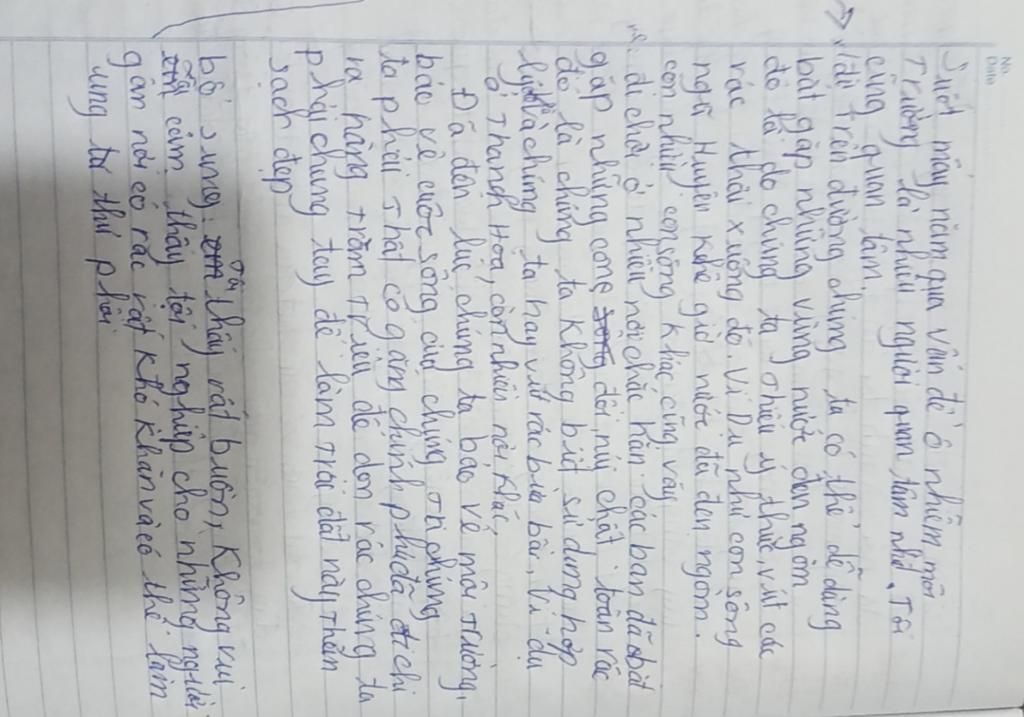 No.
Date
Suốt mấy năm qua vấn đề ô nhiễm môi
Trường là nhiều người quan tâm nhất. Tôi
cũng quan tâm.
Với trên đường chúng ta có thể dễ dàng
bắt gặp những vùng nước đen ngòm
đó là do chúng ta thiếu ý thức, vứt các
rác thải xuống đó. Ví Dụ như con sông
ngã Huyện khê giờ nước đã đen ngòm.
còn nhiều con sông khác cũng vậy
đi chơi ở nhiều nơi chắc hẳn các bạn đã bắt
gặp những cong đồi, núi chất toàn rác
đó là chúng ta không biết sử dụng hợp
lý và chúng ta hay vứt rác bừa bãi, ví dụ
ở Thanh Hóa, còn nhiều nơi khác,
Đã đến lúc chúng ta bảo vệ môi trường,
bảo vệ cuộc sống của chúng ta chúng
ta phải thật cố gắng chính phủ đã chi
ra hàng trăm triệu để dọn rác chúng ta
phải chung tay để làm trái đất này thêm
sạch đẹp
Tôi thấy rất buồn, không vui
Tôi cảm thấy tội nghiệp cho những người
gần nơi có rác rất khó khăn và có thể làm
ung tư thư phổi